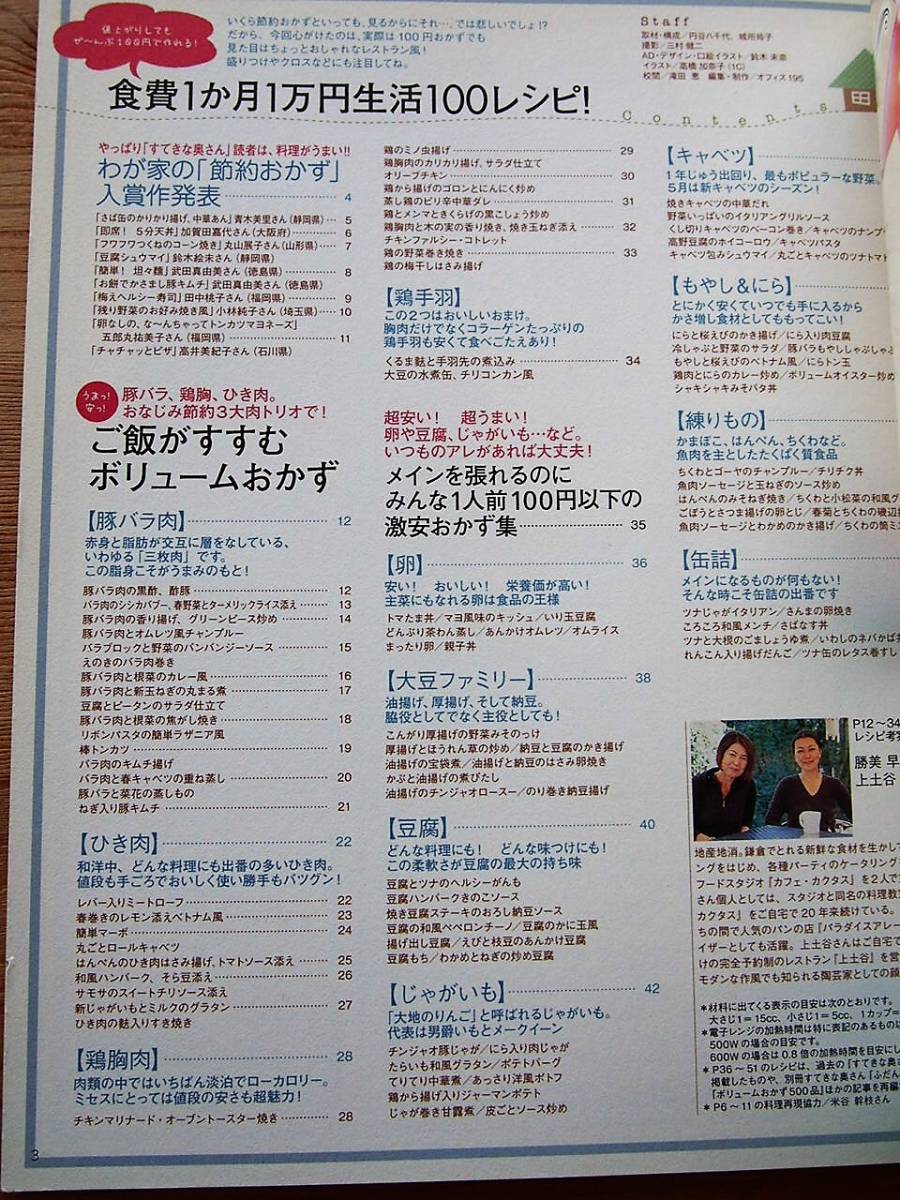 値上がりしても
ぜ〜んぶ100円で作れる!
いくら節約おかずといっても、見るからにそれ…、では悲しいでしょ!?
だから、今回心がけたのは、実際は100円おかずでも
見た目はちょっとおしゃれなレストラン風!
盛りつけやクロスなどにも注目してね。
Staff
取材・構成/円谷八千代、城所玲子
撮影/三村健二
AD・デザイン・口絵イラスト/鈴木未奈
イラスト/高橋加奈子(1C)
校閲/滝田恵 編集・制作/オフィス195
食費1か月1万円生活100レシピ!
Contents
やっぱり「すてきな奥さん」読者は、料理がうまい!!
わが家の「節約おかず」
入賞作発表 4
「さば缶のかりかり揚げ、中華あん」青木美里さん(静岡県)… 5
「即席! 5分天丼」加賀田嘉代さん(大阪府) 6
「フワフワつくねのコーン焼き」丸山展子さん(山形県)… 7
「豆腐シュウマイ」鈴木絵末さん(静岡県)
「簡単! 坦々麵」武田真由美さん(徳島県) 8
「お餅でかさまし豚キムチ」武田真由美さん(徳島県)
「梅えヘルシー寿司」田中桃子さん(福岡県) 9
「残り野菜のお好み焼き風」小林純子さん(埼玉県)… 10
「卵なしの、な〜んちゃってトンカツマヨネーズ」
五郎丸祐美子さん(福岡県) 11
「チャチャッとピザ」高井美紀子さん(石川県)
うまっ!
安っ!
豚バラ、鶏胸、ひき肉。
おなじみ節約3大肉トリオで!
ご飯がすすむ
ボリュームおかず
【豚バラ肉】 12
赤身と脂肪が交互に層をなしている、
いわゆる「三枚肉」です。
この脂身こそがうまみのもと!
豚バラ肉の黒酢、酢豚 12
バラ肉のシシカバブー、春野菜とターメリックライス添え 13
豚バラ肉の香り揚げ、グリーンピース炒め 14
豚バラ肉とオムレツ風チャンプルー
バラブロックと野菜のバンバンジーソース 15
えのきのバラ肉巻き
豚バラ肉と根菜のカレー風 16
豚バラ肉と新玉ねぎの丸まる煮 17
豆腐とピータンのサラダ仕立て
豚バラ肉と根菜の焦がし焼き 18
リボンパスタの簡単ラザニア風
棒トンカツ 19
バラ肉のキムチ揚げ
バラ肉と春キャベツの重ね蒸し 20
豚バラと菜花の蒸しもの
ねぎ入り豚キムチ 21
【ひき肉】 22
和洋中、どんな料理にも出番の多いひき肉。
値段も手ごろでおいしく使い勝手もバツグン!
レバー入りミートローフ 22
春巻きのレモン添えベトナム風 23
簡単マーボ 24
丸ごとロールキャベツ
はんぺんのひき肉はさみ揚げ、トマトソース添え 25
和風ハンバーク、そら豆添え 26
サモサのスイートチリソース添え
新じゃがいもとミルクのグラタン 27
ひき肉の麩入りすき焼き
【鶏胸肉】 28
肉類の中ではいちばん淡泊でローカロリー。
ミセスにとっては値段の安さも超魅力!
チキンマリナード・オーブントースター焼き 28
3
鶏のミノ虫揚げ 29
鶏胸肉のカリカリ揚げ、サラダ仕立て
オリーブチキン 30
鶏から揚げのゴロンとにんにく炒め
蒸し鶏のピリ辛中華ダレ 31
鶏とメンマときくらげの黒こしょう炒め
鶏胸肉と木の実の香り焼き、焼き玉ねぎ添え 32
チキンファルシー・コトレット
鶏の野菜巻き焼き 33
鶏の梅干しはさみ揚げ
【鶏手羽】
この2つはおいしいおまけ。
胸肉だけでなくコラーゲンたっぷりの
鶏手羽も安くて食べごたえあり!
くるま麩と手羽先の煮込み 34
大豆の水煮缶、チリコンカン風
超安い! 超うまい!
卵や豆腐、じゃがいも…など。
いつものアレがあれば大丈夫!
メインを張れるのに
みんな1人前100円以下の
激安おかず集 35
【卵】 36
安い! おいしい! 栄養価が高い!
主菜にもなれる卵は食品の王様
トマたま丼/マヨ風味のキッシュ/いり玉豆腐
どんぶり茶わん蒸し/あんかけオムレツ/オムライス
まったり卵/親子丼
【大豆ファミリー】 38
油揚げ、厚揚げ、そして納豆。
脇役としてでなく主役としても!
こんがり厚揚げの野菜みそのっけ
厚揚げとほうれん草の炒め/納豆と豆腐のかき揚げ
油揚げの宝袋煮/油揚げと納豆のはさみ卵焼き
かぶと油揚げの煮びたし
油揚げのチンジャオロースー/のり巻き納豆揚げ
【豆腐】 40
どんな料理にも! どんな味つけにも!
この柔軟さが豆腐の最大の持ち味
豆腐とツナのヘルシーがんも
豆腐ハンバークきのこソース
焼き豆腐ステーキのおろし納豆ソース
豆腐の和風ペペロンチーノ/豆腐のかに玉風
揚げ出し豆腐/えびと枝豆のあんかけ豆腐
豆腐もち/わかめとねぎの炒め豆腐
【じゃがいも】 42
「大地のりんご」と呼ばれるじゃがいも。
代表は男爵いもとメークイーン
チンジャオ豚じゃが/にら入り肉じゃが
たらいも和風グラタン/ポテトバーグ
てりてり中華煮/あっさり洋風ポトフ
鶏から揚げ入りジャーマンポテト
じゃが巻き甘露煮/皮ごとソース炒め
【キャベツ】
1年じゅう出回り、最もポピュラーな野菜。
5月は新キャベツのシーズン!
焼きキャベツの中華だれ
野菜いっぱいのイタリアングリルソース
くし切りキャベツのベーコン巻き/キャベツのナンプ
高野豆腐のホイコーロウ/キャベツパスタ
キャベツ包みシュウマイ/丸ごとキャベツのツナトマト
【もやし&にら】
とにかく安くていつでも手に入るから
かさ増し食材としてももってこい!
にらと桜えびのかき揚げ/にら入り肉豆腐
冷しゃぶと野菜のサラダ/豚バラもやししゃぶしゃぶ
もやしと桜えびのベトナム風/にらトン玉
鶏肉とにらのカレー炒め/ボリュームオイスター炒め
シャキシャキみそバタ丼
【練りもの】
かまぼこ、はんぺん、ちくわなど。
魚肉を主としたたくぱく質食品
ちくわとゴーヤのチャンプルー/チリチク丼
魚肉ソーセージと玉ねぎのソース炒め
はんぺんのみそねぎ焼き/ちくわと小松菜の和風グ
ごぼうとさつま揚げの卵とじ/春菊とちくわの磯辺揚
魚肉ソーセージとわかめのかき揚げ/ちくわの筒ミ
【缶詰】
メインになるものが何もない!
そんな時こそ缶詰の出番です
ツナじゃがイタリアン/さんまの卵焼き
ころころ和風メンチ/さばなす丼
ツナと大根のごましょうゆ煮/いわしのネバかば丼
れんこん入り揚げだんご/ツナ缶のレタス巻すし
P12〜34
レシピ考案
勝美 早
上土谷
地産地消。鎌倉でとれる新鮮な食材を生かして
ングをはじめ、各種パーティのケータリング
フードスタジオ『カフェ・カクタス』を2人で
さん個人としては、スタジオと同名の料理教
カクタス』をご自宅で20年来続けている。
ちの間で人気のパンの店『パラダイスアレー
イザーとしても活躍。上土谷さんはご自宅で
けの完全予約制のレストラン『上土谷』を営
モダンな作風でも知られる陶芸家としての顔
*材料に出てくる表示の目安は次のとおりです。
大さじ1=15cc、小さじ1=5cc、1カップ=
*電子レンジの加熱時間は特に表記のあるもの以
500Wの場合の目安です。
600Wの場合は0.8倍の加熱時間を目安にし
*P36〜51のレシピは、過去の『すてきな奥さ
掲載したものや、別冊すてきな奥さん『ふだん
『ボリュームおかず500品』ほかの記事を再編
*P6〜11の料理再現協力/米谷 幹枝さん